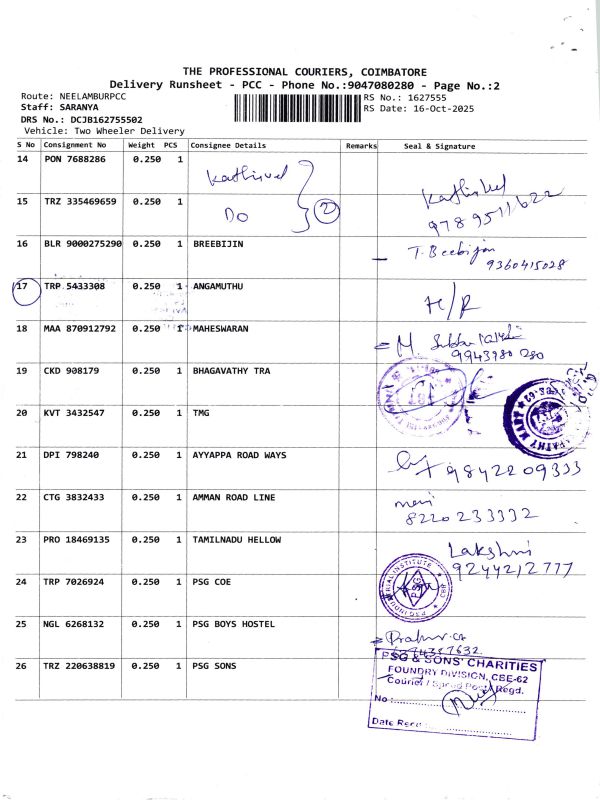 THE PROFESSIONAL COURIERS, COIMBATORE
Delivery Runsheet - PCC - Phone No.:9047080280 - Page No.:2
Route: NEELAMBURPCC
RS No.: 1627555
Staff: SARANYA
RS Date: 16-Oct-2025
DRS No.: DCJB162755502
Vehicle: Two Wheeler Delivery
S No Consignment No Weight PCS Consignee Details Remarks Seal & Signature
14 PON 7688286 0.250 1 Kathirvel
15 TRZ 335469659 0.250 1 Do 2 Kathirvel
9789511622
16 BLR 9000275290 0.250 1 BREEBIJIN T. Beebijin
9360415028
17 TRP 5433308 0.250 1 ANGAMUTHU H/R
18 MAA 870912792 0.250 1 MAHESWARAN M.
9943980280
19 CKD 908179 0.250 1 BHAGAVATHY TRA
20 KVT 3432547 0.250 1 TMG
21 DPI 798240 0.250 1 AYYAPPA ROAD WAYS 9842209333
22 CTG 3832433 0.250 1 AMMAN ROAD LINE mani
8220233332
23 PRO 18469135 0.250 1 TAMILNADU HELLOW Lakshmi
9244212777
24 TRP 7026924 0.250 1 PSG COE PSG INDUSTRIAL INSTITUTE CBE PSG
25 NGL 6268132 0.250 1 PSG BOYS HOSTEL
26 TRZ 220638819 0.250 1 PSG SONS
PSG & SONS' CHARITIES
FOUNDRY DIVISION, CBE-62
Courier / Speed Post / Regd.
No :
Date Recd :